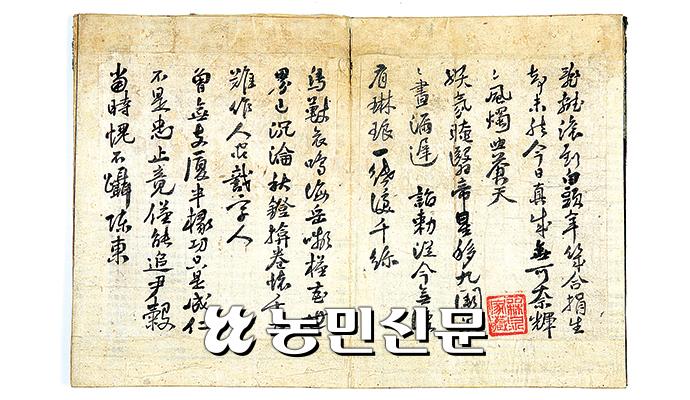 亂離滾到白頭年幾合捐生
却未然今日真成無可奈輝
々風燭照蒼天
妖氛晻翳帝星移九闕
々晝漏遲詔勅從今無
有琳琅一紙淚千絲
鳥獸哀鳴海岳嚬槿花世
界已沉淪秋鐙掩卷懷千
難作人間識字人
曾無支廈半椽功只是成仁
不是忠止竟僅能追尹穀
當時愧不躡陳東
농민신문